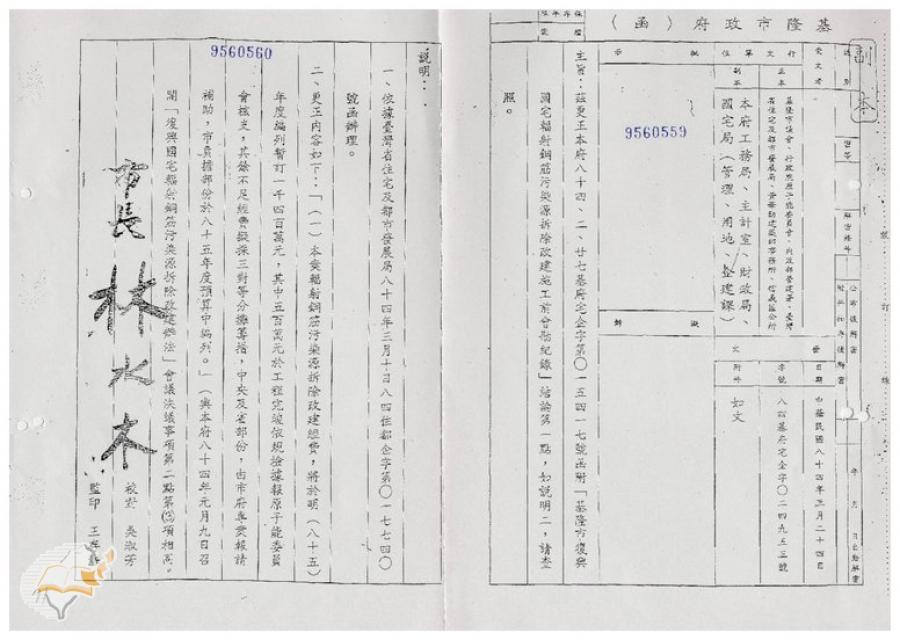 基隆市政府（函）
副本
受文者
行文單位
正本
基隆市議會、行政院原子能委員會、內政部營建署、臺灣省住宅及都市發展局、黃華勛建築師事務所、信義區公所
副本
本府工務局、主計室、財政局、國宅局（管理、用地、整建課）
發文
日期
中華民國八十四年三月二十四日
字號
八四基府宅企字〇二四九五三號
附件
如文
批示
擬辦
9560559
主旨：茲更正本府八十四、二、廿七基府宅企字第〇一五四一七號函附「基隆市復興
國宅輻射鋼筋污染源拆除改建施工前會勘紀錄」結論第一點，如說明二，請查
照。
9560560
說明：
一、依據臺灣省住宅及都市發展局八十四年三月十日八四住都企字第〇一七七四〇
號函辦理。
二、更正內容如下：「（一）本案輻射鋼筋污染源拆除改建經費，將於明（八十五）
年度編列暫訂一千四百萬元，其中五百萬元於工程完竣依規檢據報原子能委員
會核支，其餘不足經費擬採三對等分攤籌措，中央及省部份，由市府專案報請
補助，市負擔部份於八十五年度預算中編列。」（與本府八十四年元月九日召
開「復興國宅輻射鋼筋污染源拆除改建辦法」會議決議事項第二點第㈢項相高。
市長 林水木
校對 吳淑芳
監印 王